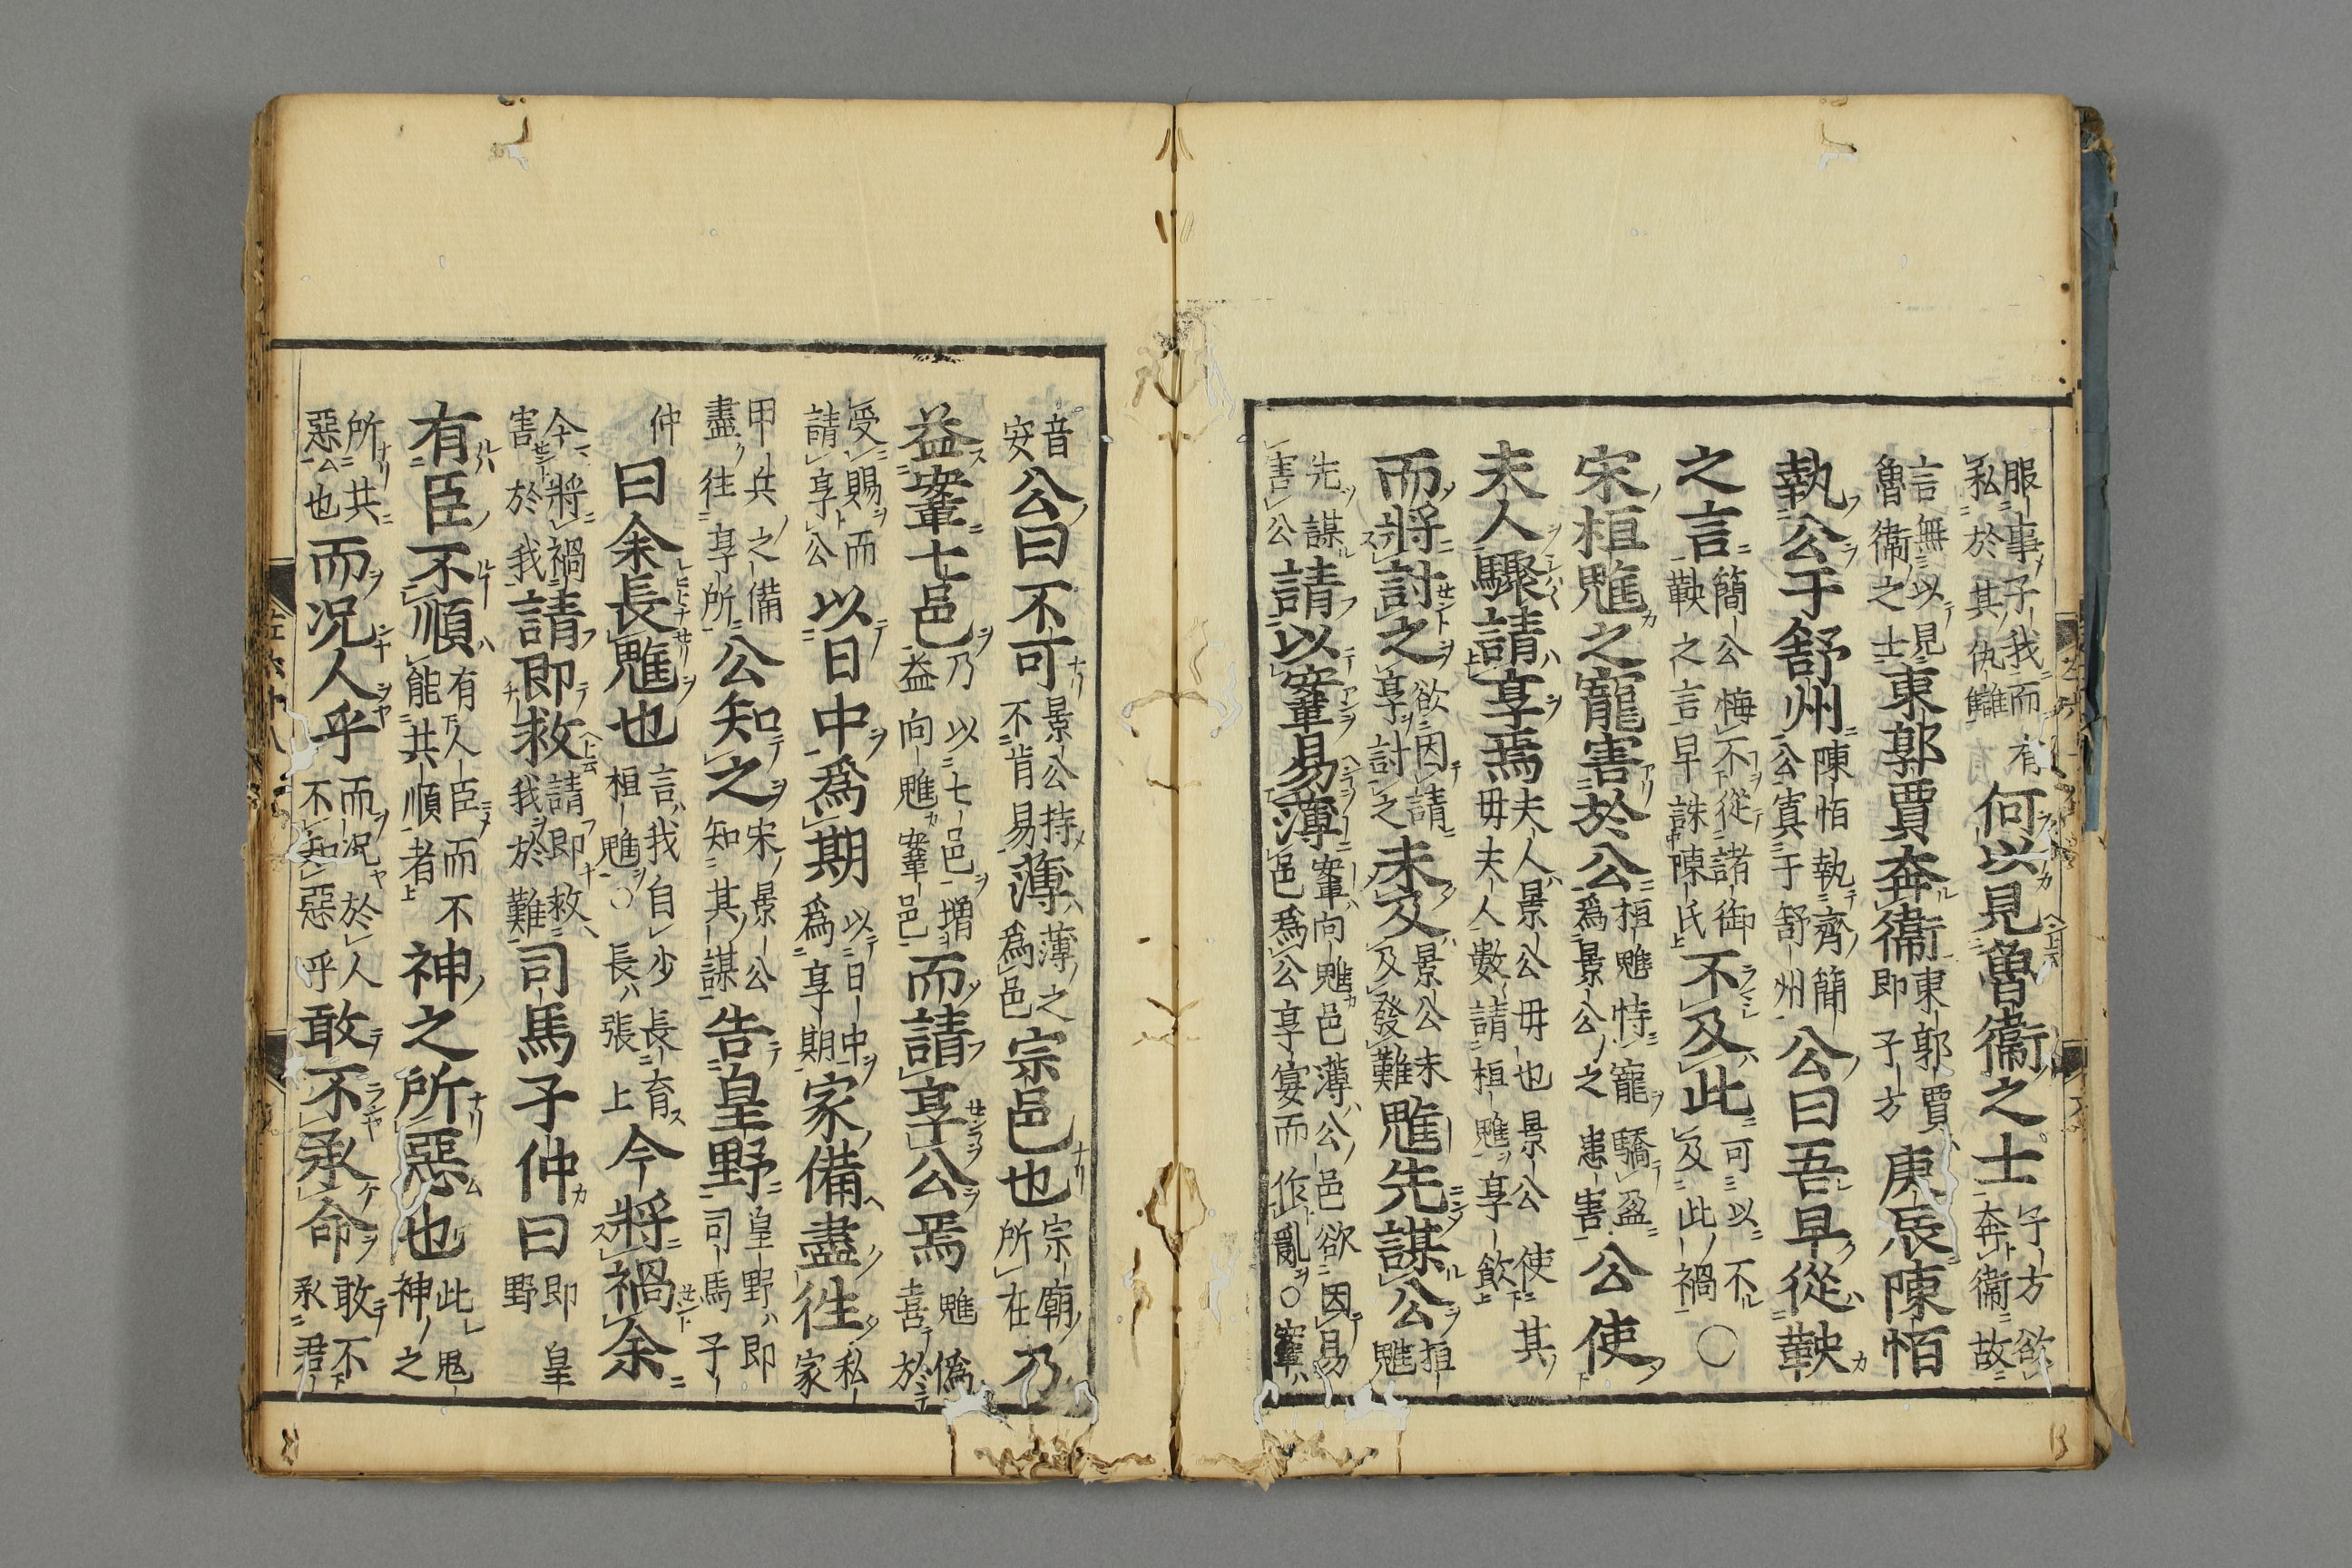 服事子我而有私於其仇讎何以見魯衞之士子方欲奔衞故
言無以見魯衞之士東郭賈奔衞東郭賈即子方庚辰陳恒
執公于舒州陳恒執齊簡公寘于舒州公曰吾早從鞅
之言簡公悔不從諸御鞅之言早誅陳氏不及此可以不及此禍〇
宋桓魋之寵害於公桓魋恃寵驕盈爲景公之患害公使
夫人驟請享焉夫人景公母也景公使其母夫人數請桓魋享飲
而將討之欲因請享討之未及景公未及發難魋先謀公桓魋
先謀害公請以鞌易薄鞌向魋邑薄公邑欲因易邑爲公享宴而作亂〇鞌
音安公曰不可景公持不肯易薄薄之爲邑宗邑也宗廟所在乃
益鞌七邑乃以七邑增益向魋鞌邑而請享公焉魋僞喜於
受賜而請享公以日中爲期以日中爲享期家備盡往私家
甲兵之備盡往享所公知之宋景公知其謀告皇野皇野即司馬子
仲曰余長魋也言我自少長育桓魋〇長張上今將禍余
今將禍害於我請即救請即救我於難司馬子仲曰即皇野
有臣不順有人臣而不能共順者神之所惡也此鬼神之
所共惡也而況人乎而況於人不知惡乎敢不承命敢不承君